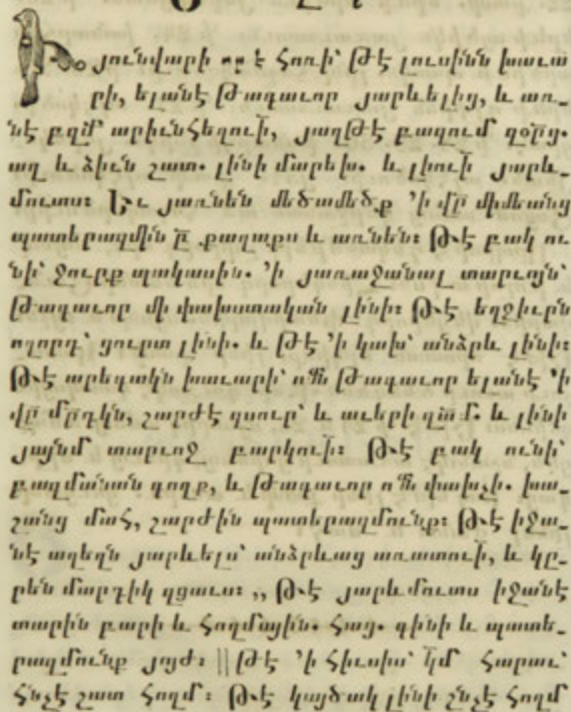 Յունվարի ոռ է հոռի՝ թէ լուսինն խաւա
րի, ելանէ թագաւոր յարևելից, և առ-
նէ բզմ̃ արիւնհեղուի̃, յաղթէ բազում զօր̃ց.
աղ և ձիւն շատ. լինի մարեխ. և լիուի̃ յարև-
մուտս: Եւ յառնեն մեծամեծք ՚ի վր̃ միմեանց
պատերազմին բ̃ քաղաքս և առնեն: Թէ բակ ու
նի՝ ջուրք պակասին. ՚ի յառաջանալ տարւոյն՝
թագաւոր մի փախստական լինի: Թէ եղջիւրն
ողորդ՝ ցուրտ լինի. և թէ ՚ի կախ՝ անձրև լինի:
Թէ արեգակն խաւարի՝ ոմն թագաւոր ելանէ ՚ի
վր̃ մր̃դկն, շարժէ զսուր՝ և աւերի զամ̃. և լինի
յայնմ տարւոջ բարկուի̃: Թէ բակ ունի՝
բազմանան գողք, և թագաւոր ոմն փախչի. խա-
շանց մահ, շարժին պատերազմունք: Թէ իջա-
նէ աղեղն յարևելս՝ անձրևաց առատուի̃, և կը-
րեն մարդիկ զցաւս: ,, Թէ յարևմուտս իջանէ
տարին բարի և հողմային. հաց. գինի և պատե-
րազմունք յոյժ: || Թէ ՚ի հիւսիս՝ կմ̃ հարաւ՝
հնչէ շատ հողմ: Թէ կայծակ լինի շնչէ հողմ